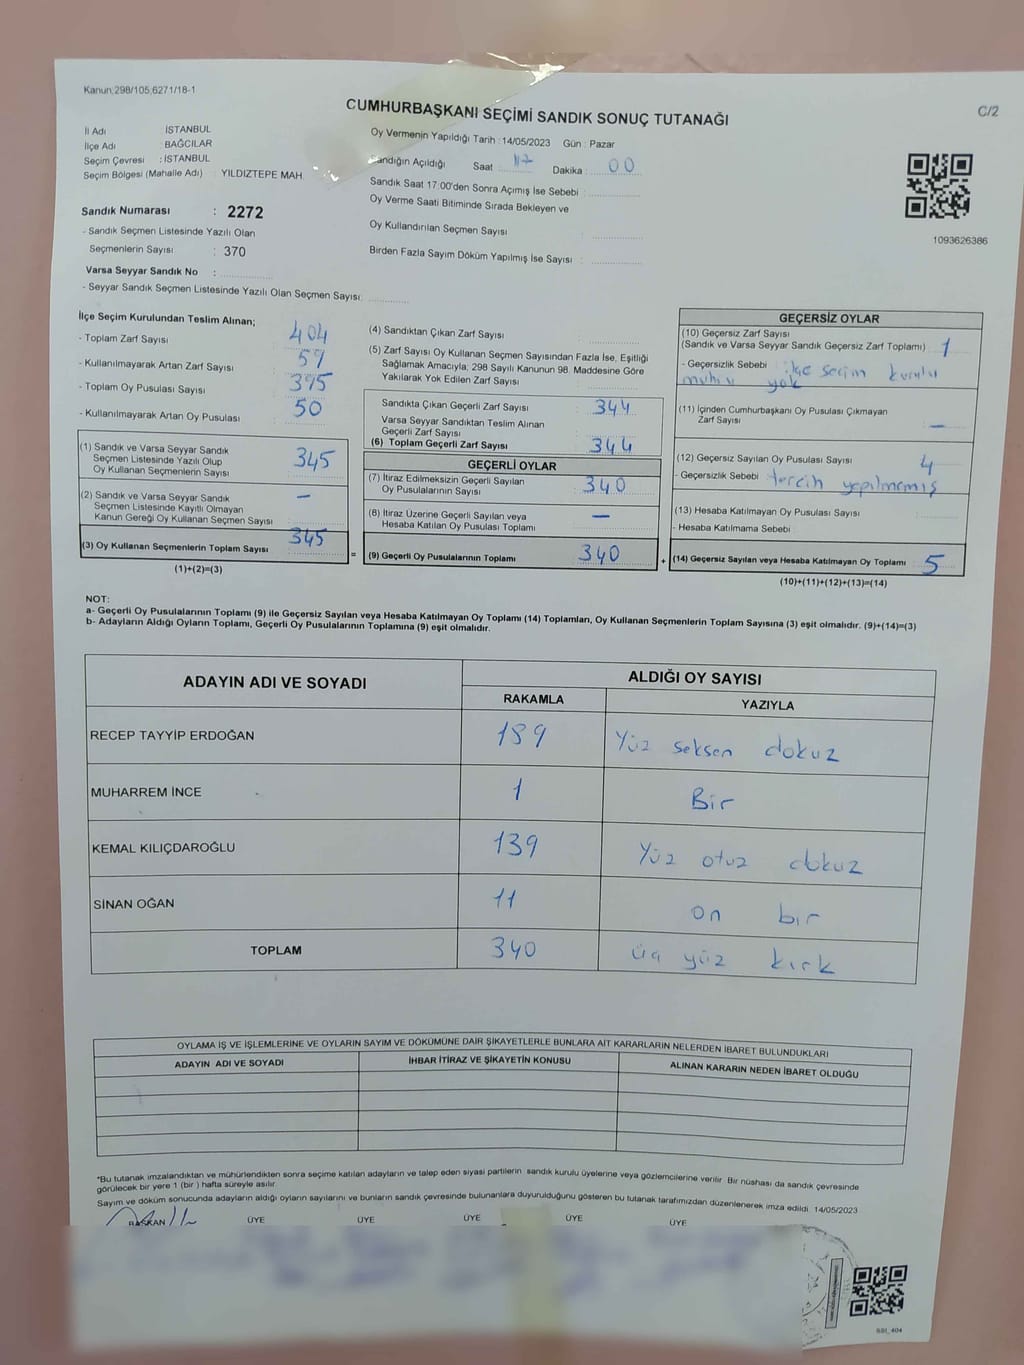 Kanun:298/105,6271/18-1
C/2
CUMHURBAŞKANI SEÇİMİ SANDIK SONUÇ TUTANAĞI
İl Adı İSTANBUL
İlçe Adı BAĞCILAR
Seçim Çevresi : İSTANBUL
Seçim Bölgesi (Mahalle Adı) : YILDIZTEPE MAH.
Sandık Numarası : 2272
- Sandık Seçmen Listesinde Yazılı Olan
Seçmenlerin Sayısı : 370
Varsa Seyyar Sandık No :
- Seyyar Sandık Seçmen Listesinde Yazılı Olan Seçmen Sayısı:
Oy Vermenin Yapıldığı Tarih : 14/05/2023 Gün : Pazar
Sandığın Açıldığı Saat : 17 Dakika : 00
Sandık Saat 17:00'den Sonra Açımış İse Sebebi :
Oy Verme Saati Bitiminde Sırada Bekleyen ve
Oy Kullandırılan Seçmen Sayısı :
Birden Fazla Sayım Döküm Yapılmış İse Sayısı :
1093626386
İlçe Seçim Kurulundan Teslim Alınan;
- Toplam Zarf Sayısı 404
- Kullanılmayarak Artan Zarf Sayısı 59
- Toplam Oy Pusulası Sayısı 395
- Kullanılmayarak Artan Oy Pusulası : 50
(1) Sandık ve Varsa Seyyar Sandık
Seçmen Listesinde Yazılı Olup
Oy Kullanan Seçmenlerin Sayısı 345
(2) Sandık ve Varsa Seyyar Sandık
Seçmen Listesinde Kayıtlı Olmayan
Kanun Gereği Oy Kullanan Seçmen Sayısı : –
(3) Oy Kullanan Seçmenlerin Toplam Sayısı 345
(1)+(2)=(3)
=
(4) Sandıktan Çıkan Zarf Sayısı :
(5) Zarf Sayısı Oy Kullanan Seçmen Sayısından Fazla İse, Eşitliği
Sağlamak Amacıyla; 298 Sayılı Kanunun 98. Maddesine Göre
Yakılarak Yok Edilen Zarf Sayısı :
Sandıkta Çıkan Geçerli Zarf Sayısı : 344
Varsa Seyyar Sandıktan Teslim Alınan
Geçerli Zarf Sayısı :
(6) Toplam Geçerli Zarf Sayısı : 344
GEÇERLİ OYLAR
(7) İtiraz Edilmeksizin Geçerli Sayılan
Oy Pusulalarının Sayısı : 340
(8) İtiraz Üzerine Geçerli Sayılan veya
Hesaba Katılan Oy Pusulası Toplamı : –
(9) Geçerli Oy Pusulalarının Toplamı : 340
+
GEÇERSİZ OYLAR
(10) Geçersiz Zarf Sayısı
(Sandık ve Varsa Seyyar Sandık Geçersiz Zarf Toplamı) : 1
- Geçersizlik Sebebi : ilçe seçim kurulu
mührü yok
(11) İçinden Cumhurbaşkanı Oy Pusulası Çıkmayan
Zarf Sayısı : –
(12) Geçersiz Sayılan Oy Pusulası Sayısı : 4
- Geçersizlik Sebebi : tercih yapılmamış
(13) Hesaba Katılmayan Oy Pusulası Sayısı :
- Hesaba Katılmama Sebebi :
(14) Geçersiz Sayılan veya Hesaba Katılmayan Oy Toplamı : 5
(10)+(11)+(12)+(13)=(14)
NOT:
a- Geçerli Oy Pusulalarının Toplamı (9) ile Geçersiz Sayılan veya Hesaba Katılmayan Oy Toplamı (14) Toplamları, Oy Kullanan Seçmenlerin Toplam Sayısına (3) eşit olmalıdır. (9)+(14)=(3)
b- Adayların Aldığı Oyların Toplamı, Geçerli Oy Pusulalarının Toplamına (9) eşit olmalıdır.
ADAYIN ADI VE SOYADI ALDIĞI OY SAYISI
RAKAMLA YAZIYLA
RECEP TAYYİP ERDOĞAN 189 Yüz seksen dokuz
MUHARREM İNCE 1 Bir
KEMAL KILIÇDAROĞLU 139 Yüz otuz dokuz
SİNAN OĞAN 11 on bir
TOPLAM 340 üç yüz kırk
OYLAMA İŞ VE İŞLEMLERİNE VE OYLARIN SAYIM VE DÖKÜMÜNE DAİR ŞİKAYETLERLE BUNLARA AİT KARARLARIN NELERDEN İBARET BULUNDUKLARI
ADAYIN ADI VE SOYADI İHBAR İTİRAZ VE ŞİKAYETİN KONUSU ALINAN KARARIN NEDEN İBARET OLDUĞU
*Bu tutanak imzalandıktan ve mühürlendikten sonra seçime katılan adayların ve talep eden siyasi partilerin sandık kurulu üyelerine veya gözlemcilerine verilir. Bir nüshası da sandık çevresinde
görülecek bir yere 1 (bir ) hafta süreyle asılır.
Sayım ve döküm sonucunda adayların aldığı oyların sayılarını ve bunların sandık çevresinde bulunanlara duyurulduğunu gösteren bu tutanak tarafımızdan düzenlenerek imza edildi. 14/05/2023
BAŞKAN ÜYE ÜYE ÜYE ÜYE ÜYE
SSI_404